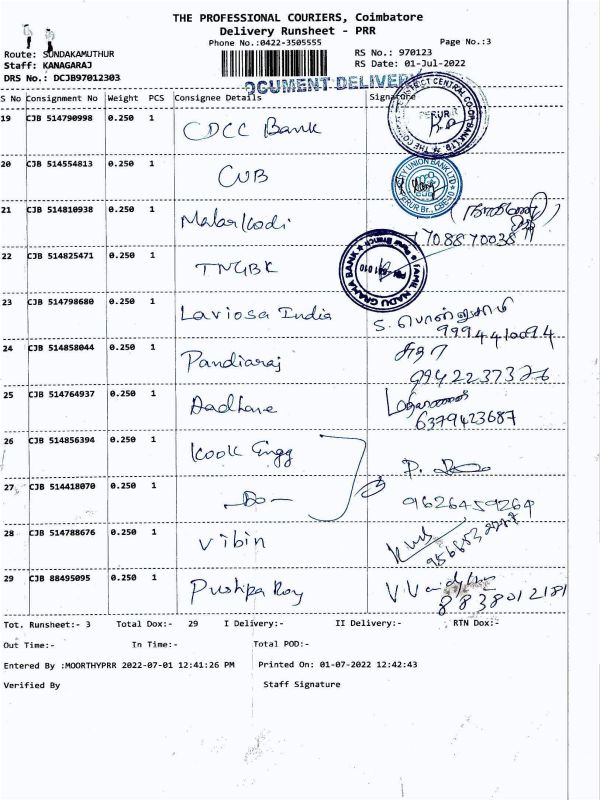 THE PROFESSIONAL COURIERS, Coimbatore
Delivery Runsheet - PRR
Phone No.:0422-3505555 Page No.:3
Route: SUNDAKAMUTHUR RS No.: 970123
Staff: KANAGARAJ RS Date: 01-Jul-2022
DRS No.: DCJB97012303
DOCUMENT DELIVERY
S No Consignment No Weight PCS Consignee Details Signature
19 CJB 514790998 0.250 1 CDCC Bank
PERUR
20 CJB 514554813 0.250 1 CUB
CITY UNION BANK LTD
PERUR Br., CBE-10
21 CJB 514810938 0.250 1 Malarkodi
7088870038
22 CJB 514825471 0.250 1 TNGBK
TAMIL NADU GRAMA BANK
Perur Branch
23 CJB 514798680 0.250 1 Laviosa India
S. பொன்னுசாமி
9994410094
24 CJB 514858044 0.250 1 Pandiaraj
9942237376
25 CJB 514764937 0.250 1 Aadhave
6379423687
26 CJB 514856394 0.250 1 Kook Engg
27 CJB 514418070 0.250 1 -Do-
9626459264
28 CJB 514788676 0.250 1 Vibin
29 CJB 88495095 0.250 1 Pushpa Roy
8838012181
Tot. Runsheet:- 3 Total Dox:- 29 I Delivery:- II Delivery:- RTN Dox:-
Out Time:- In Time:- Total POD:-
Entered By :MOORTHYPRR 2022-07-01 12:41:26 PM Printed On: 01-07-2022 12:42:43
Verified By Staff Signature